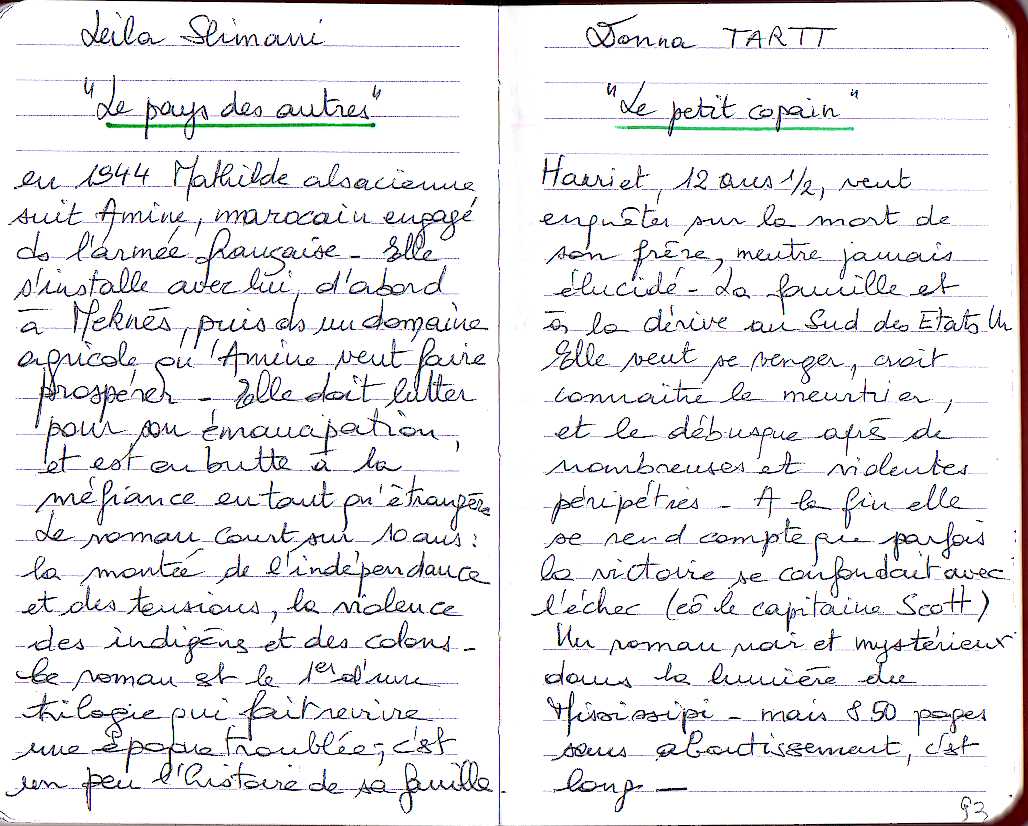 Leila Slimani
"Le pays des autres"
en 1944 Mathilde alsacienne
suit Amine, marocain engagé
ds l'armée française - Elle
s'installe avec lui, d'abord
à Meknès, puis ds un domaine
agricole où Amine veut faire
prospérer - Elle doit lutter
pour son émancipation,
et est en butte à la
méfiance en tant qu'étrangère
Le roman court sur 10 ans :
la montée de l'indépendance
et des tensions, la violence
des indigèns et des colons -
Ce roman est le 1er d'une
trilogie qui fait revivre
une époque troublée, c'est
un peu l'histoire de sa famille.
Donna TARTT
"Le petit copain"
Harriet, 12 ans 1/2, veut
enquêter sur la mort de
son frère, meutre jamais
élucidé - La famille et
à la dérive au Sud des Etats Un
Elle veut se venger, croit
connaitre le meurtrier,
et le débusque après de
nombreuses et violentes
péripéties - A la fin elle
se rend compte que parfois :
la victoire se confondait avec
l'échec (cô le capitaine Scott)
Un roman noir et mystérieux
dans la lumière du
Mississipi - mais 850 pages
sans aboutissement, c'est
long -
93